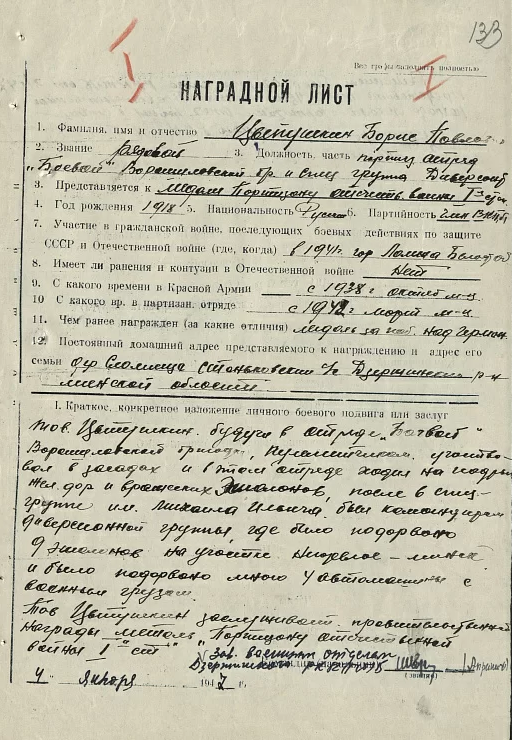 133
Все графы заполнять полностью
I
НАГРАДНОЙ ЛИСТ
1. Фамилия, имя и отчество Цытушкин Борис Павлов
2. Звание рядовой 3. Должность, часть партиз. отряд
"Боевой" Ворошиловской бр. и спец группа диверсант
3. Представляется к медали Партизану отечеств. войны I степ
4. Год рождения 1918 5. Национальность Русск 6. Партийность член ВКПб
7. Участие в гражданской войне, последующих боевых действиях по защите
СССР и Отечественной войне (где, когда) в 1941 г гор
8. Имеет ли ранения и контузии в Отечественной войне нет
9. С какого времени в Красной Армии с 1938 г октяб м-ц
10 С какого вр. в партизан. отряде с 1942 г март м-ц
11. Чем ранее награжден (за какие отличия) медаль за поб. над Герман.
12. Постоянный домашний адрес представляемого к награждению и адрес его
семьи дер Станьковский с/с Дзержинский р-н
минской области
I. Краткое, конкретное изложение личного боевого подвига или заслуг
Тов. Цытушкин. будучи в отряде "Боевой"
Ворошиловской бригады, пулеметчиком, участво-
вал в засадах и в этом отряде ходил на подрыв
жел. дор и вражеских эшалонов, после в спец-
группе им. Михаила Ильича. был командиром
диверсионной группы, где было подорвано
9 эшалонов на участке - минск.
и было подорвано мною 4 автомашины с
военным грузом.
Тов Цытушкин заслуживает правительственной
награды медаль "Партизану отечественной
войны I ст"
Зав. военным отделом
Дзержинского РК КП(б)Б
(звание)
4 января 1947 г.